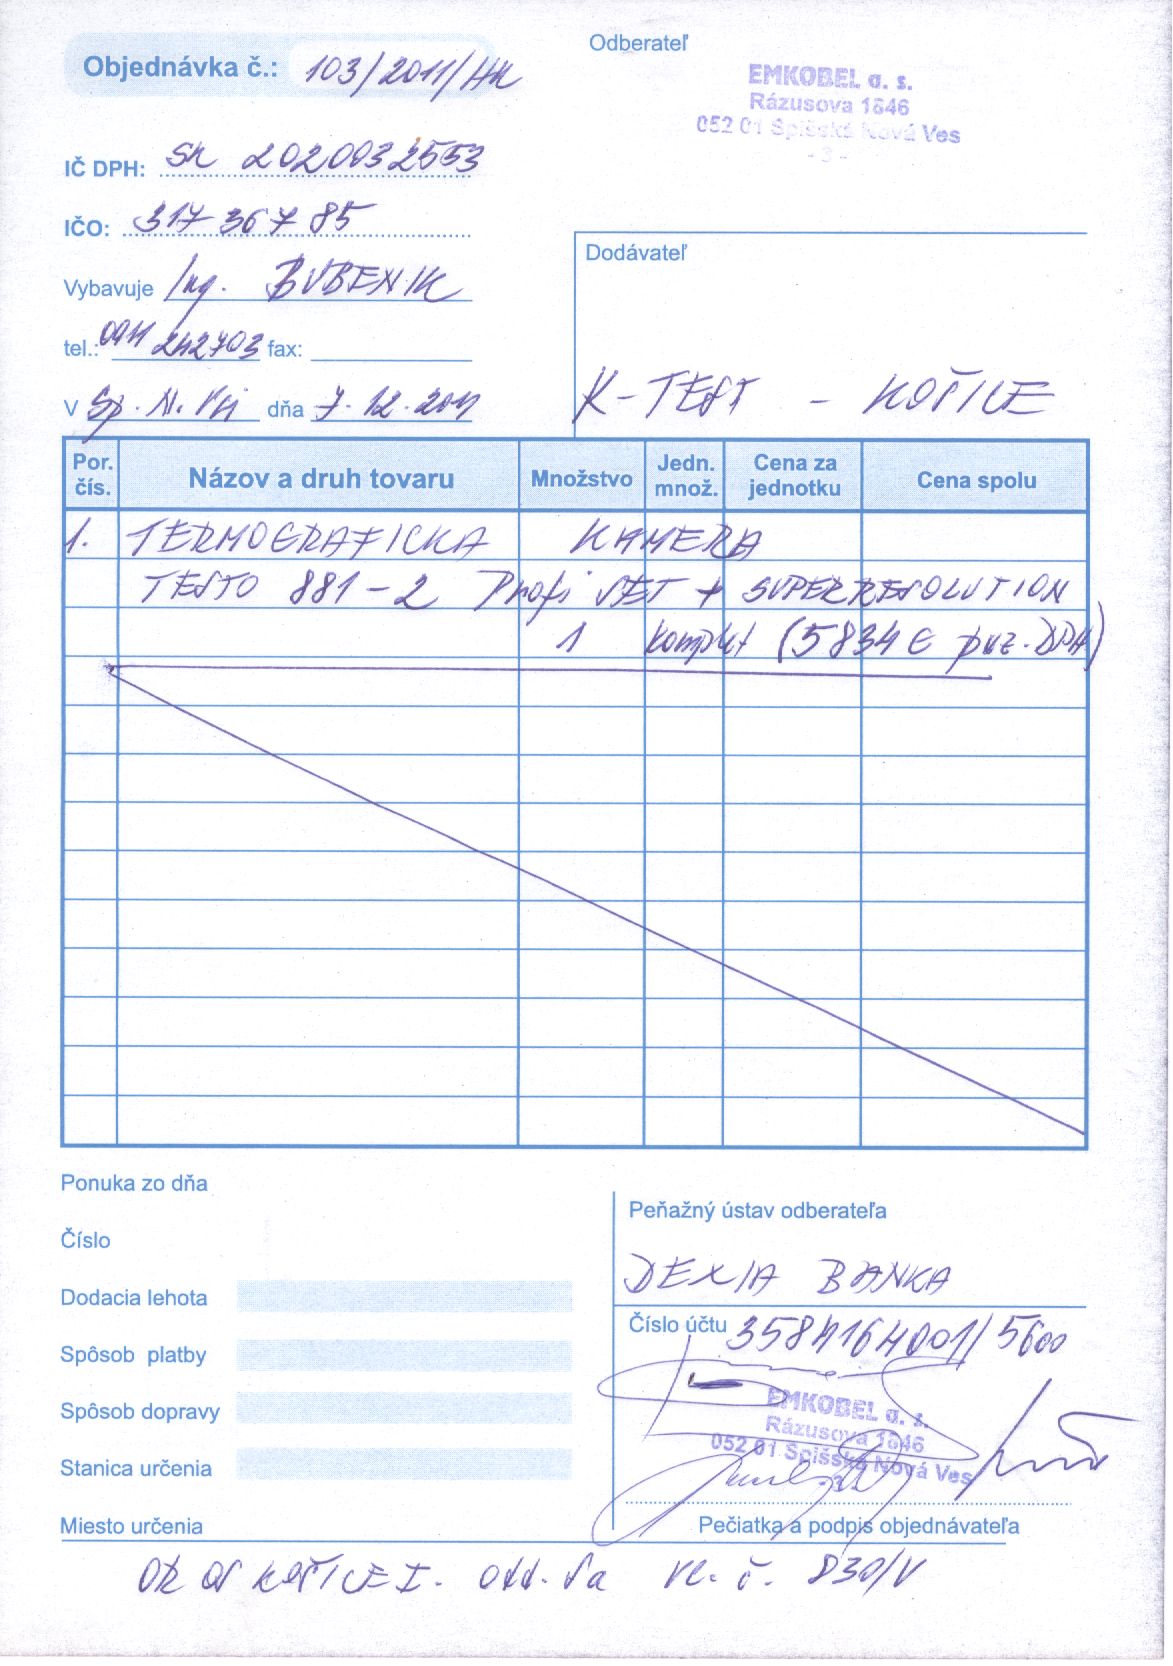 Objednávka č.: 103/2011/HK
Odberateľ
EMKOBEL a. s.
Rázusova 1846
052 01 Spišská Nová Ves
- 3 -
IČ DPH: SK 2020032553
IČO: 317 367 85
Vybavuje Ing. BUBENIK
tel.: 0911 242703 fax:
V Sp. N. Vsi dňa 7.12.2011
Dodávateľ
K-TEST - KOŠICE
Por. čís. Názov a druh tovaru Množstvo Jedn. množ. Cena za jednotku Cena spolu
1. TERMOGRAFICKA KAMERA
TESTO 881-2 Profi SET + SUPERRESOLUTION
1 komplet (5834 € bez DPH)
Ponuka zo dňa
Číslo
Dodacia lehota
Spôsob platby
Spôsob dopravy
Stanica určenia
Miesto určenia
Peňažný ústav odberateľa
DEXIA BANKA
Číslo účtu 3584164001/5600
EMKOBEL a. s.
Rázusova 1846
052 01 Spišská Nová Ves
- 3 -
Pečiatka a podpis objednávateľa
OR OS KOŠICE I. odd. Sa vl. č. 830/V